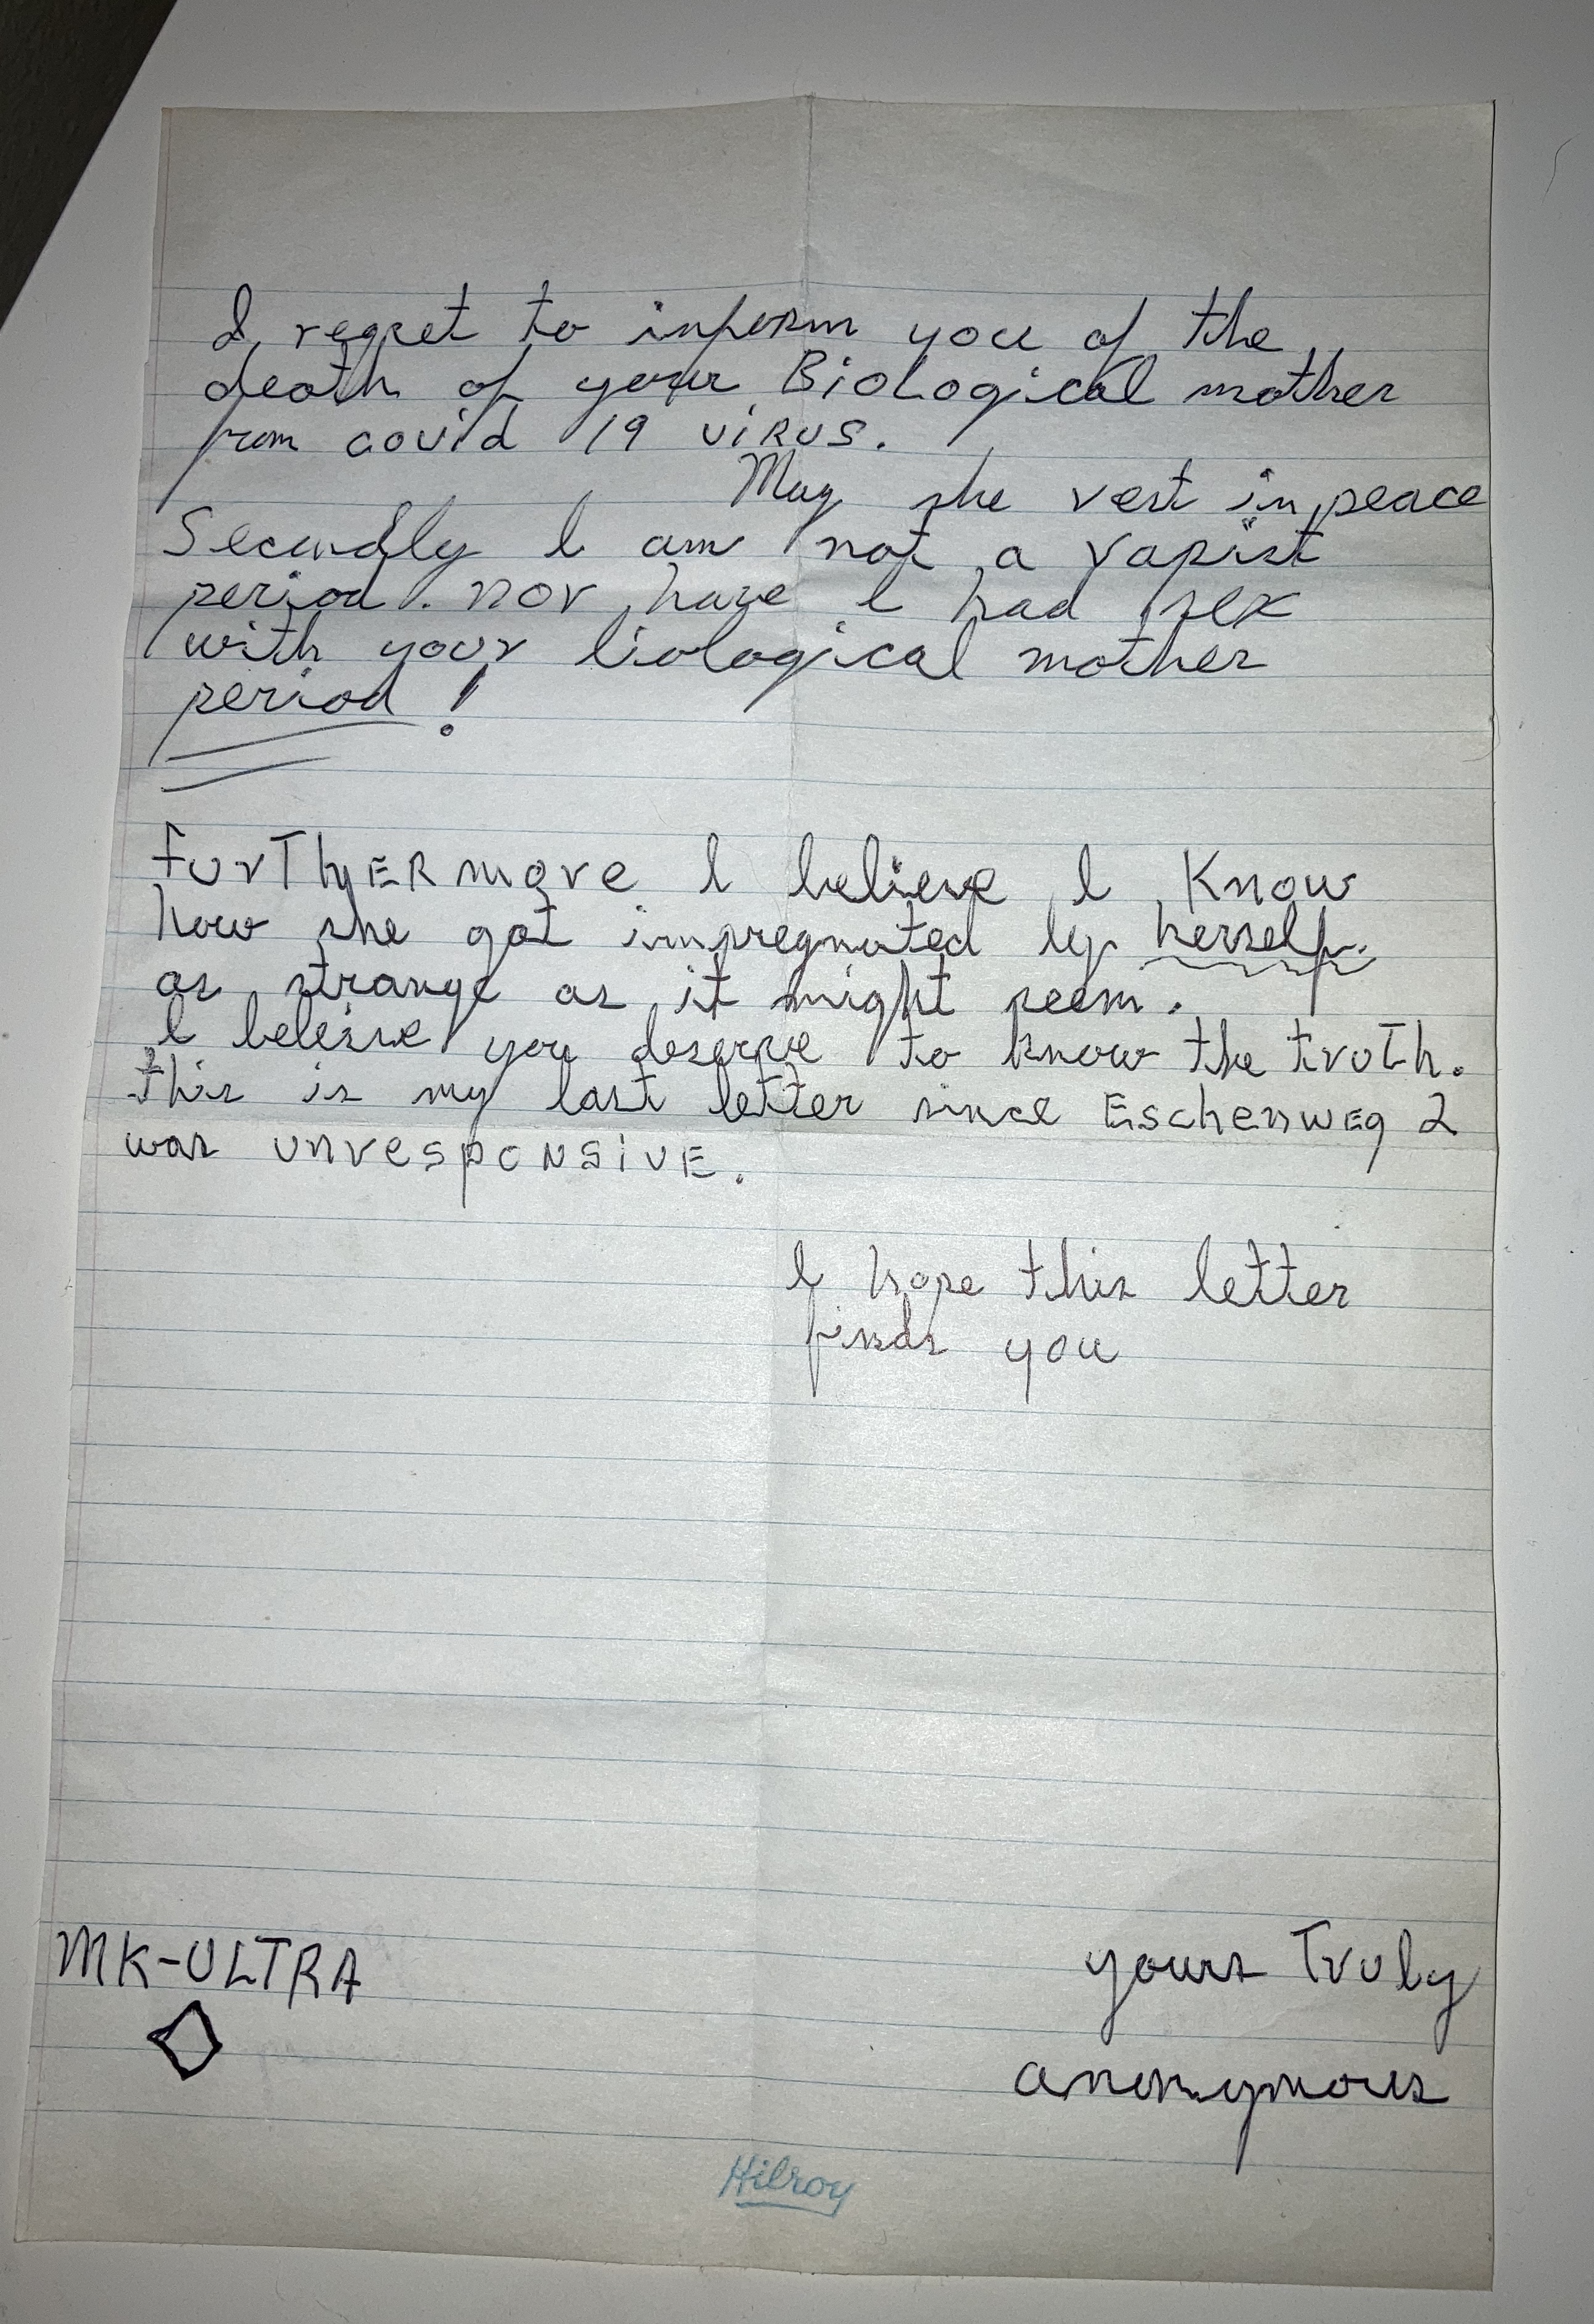 I regret to inform you of the
death of your Biological mother
from covid 19 VIRUS.
May she rest in peace
Secondly I am not a rapist
period. nor have I had sex
with your biological mother
period!
FurThERmore I believe I Know
how she got impregnated by herself.
as strange as it might seem.
I beleive you deserve to know the truth.
this is my last letter since Eschenweg 2
was unresponsive.
I hope this letter
finds you
MK-ULTRA
yours Truly
anonymous
Hilroy